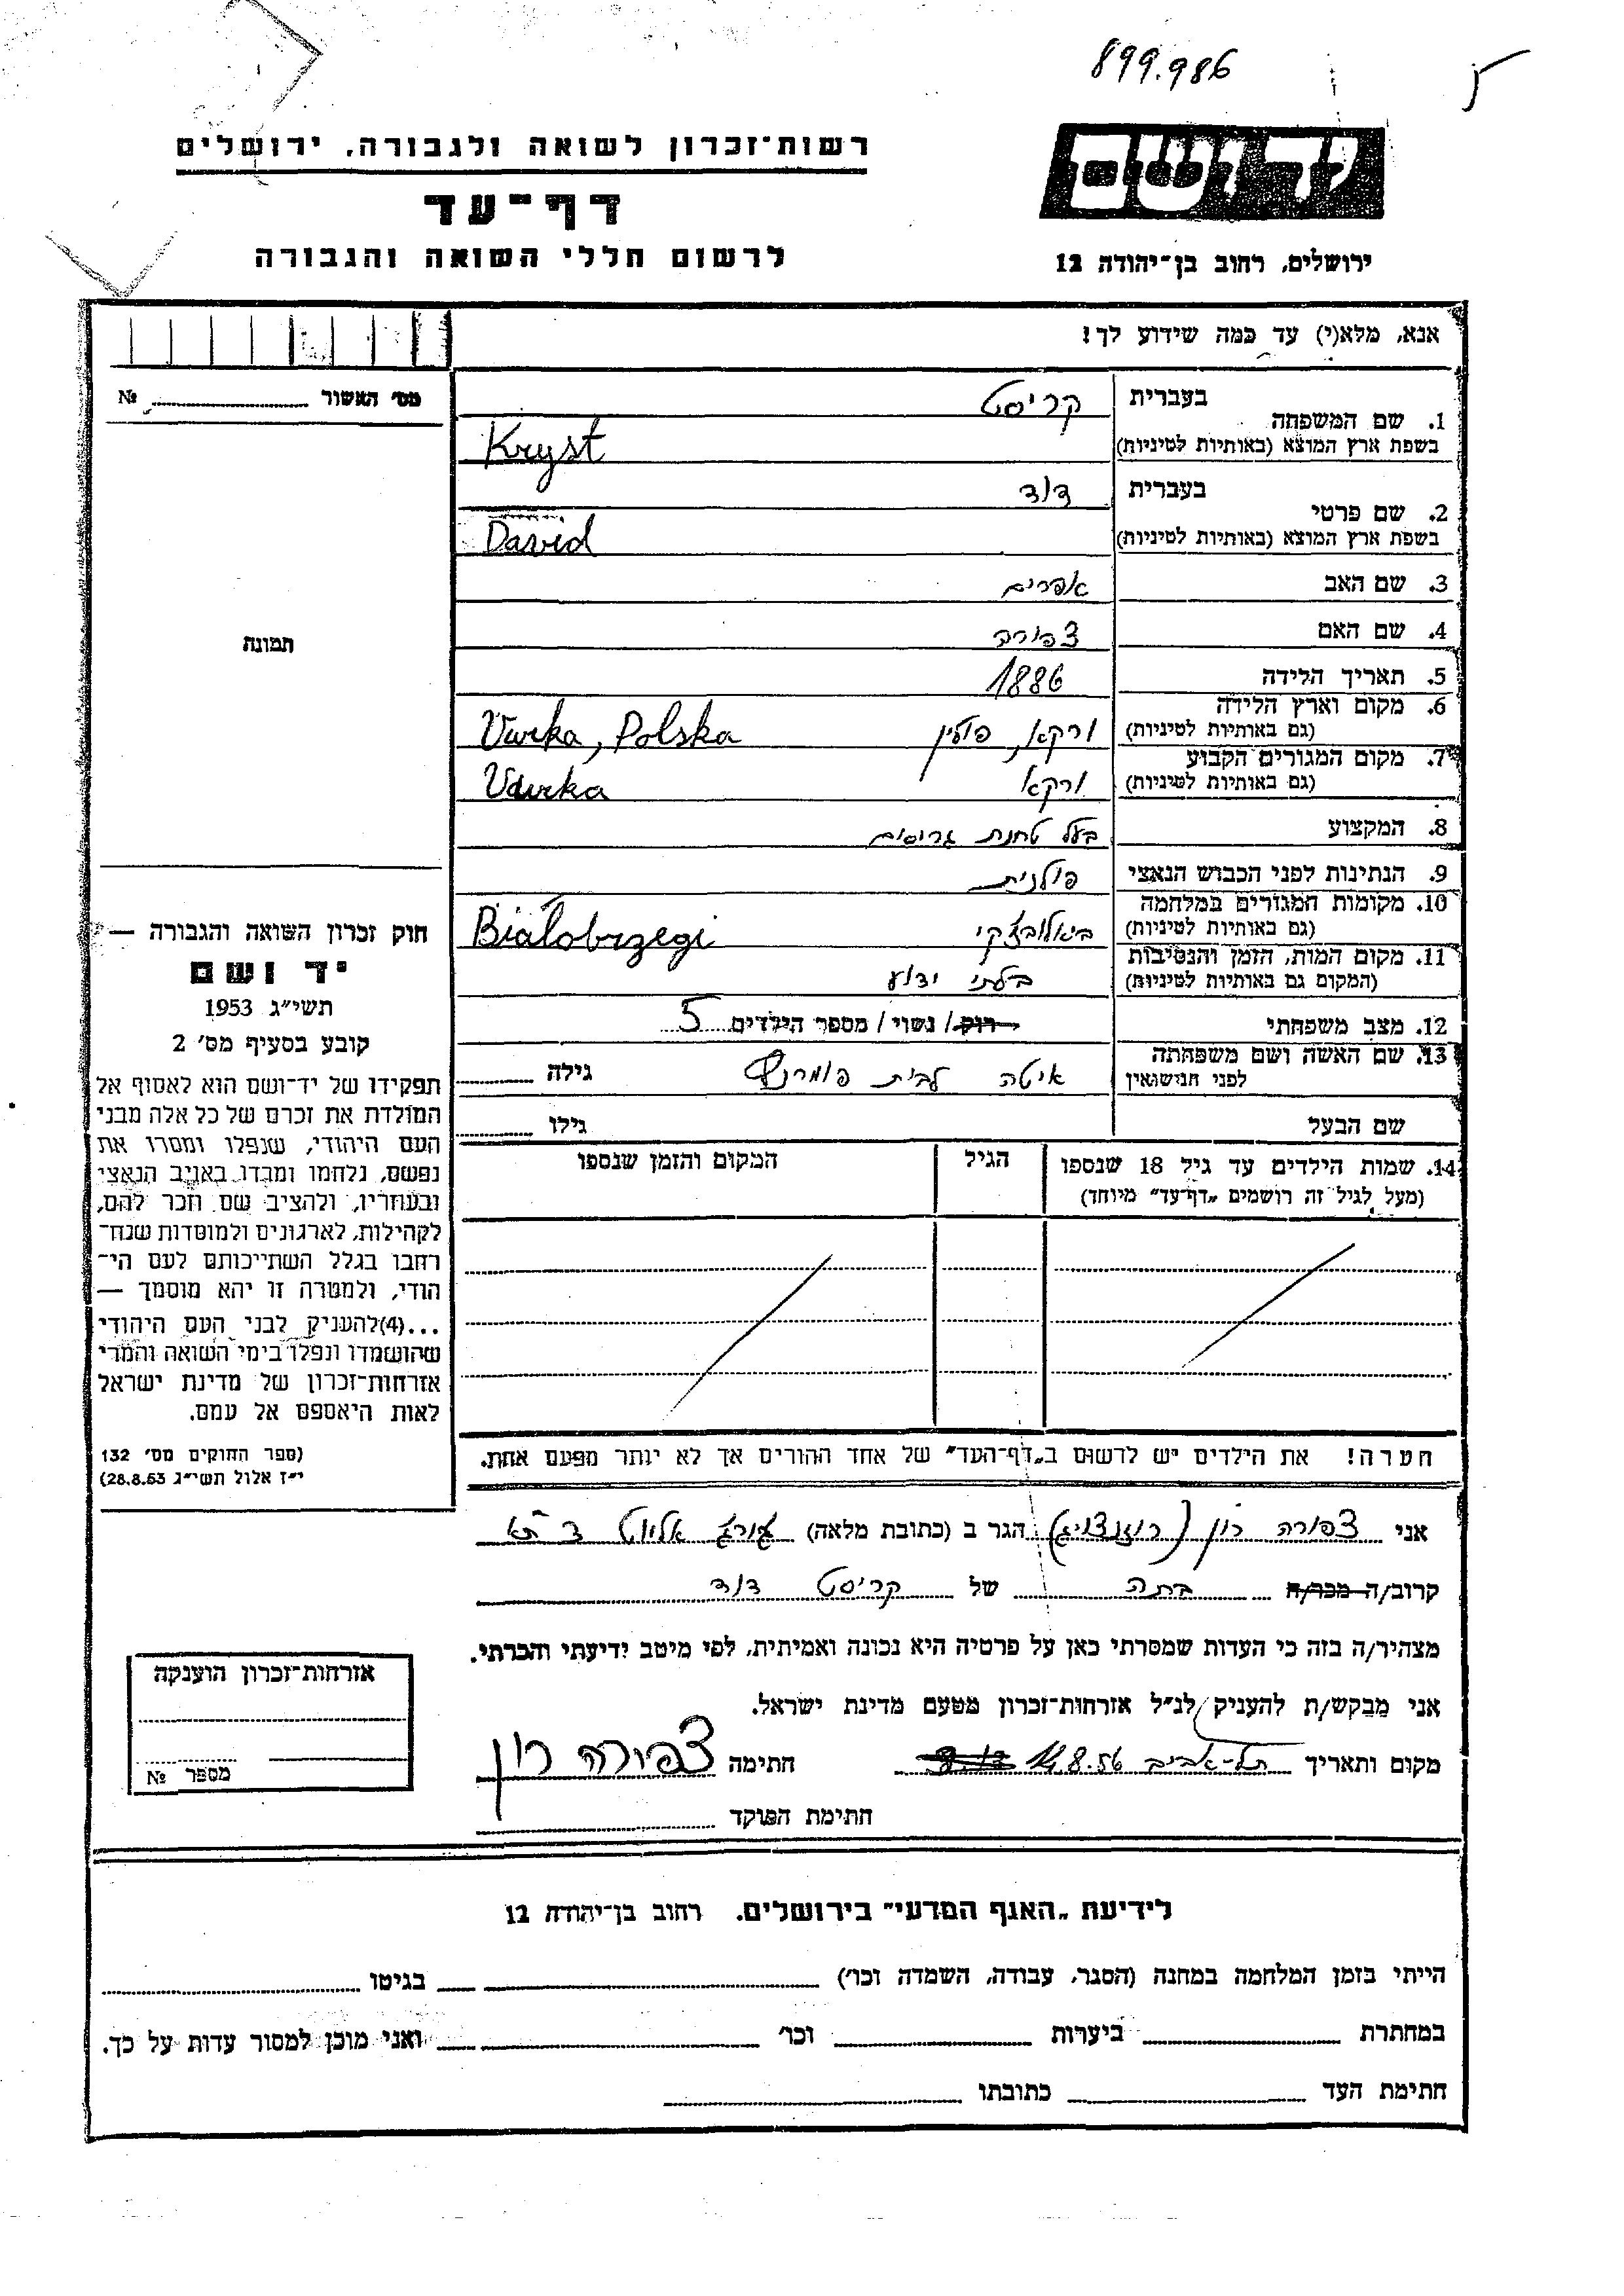 899.986
רשות־זכרון לשואה ולגבורה, ירושלים
יד ושם
דף־עד
לרשום חללי השואה והגבורה
ירושלים, רחוב בן־יהודה 12
אנא, מלא(י) עד כמה שידוע לך!
מס' האשור № 
בעברית קריסט
1. שם המשפחה
בשפת ארץ המוצא (באותיות לטיניות) Kryst
בעברית דוד
2. שם פרטי
בשפת ארץ המוצא (באותיות לטיניות) David
3. שם האב אפרים
4. שם האם צפורה
5. תאריך הלידה 1886
6. מקום וארץ הלידה
(גם באותיות לטיניות) ורקא, פולין Vurka, Polska
7. מקום המגורים הקבוע
(גם באותיות לטיניות) ורקא Vurka
8. המקצוע בעל טחנת גריסים
9. הנתינות לפני הכבוש הנאצי פולנית
10. מקומות המגורים במלחמה
(גם באותיות לטיניות) ביאלובז'קי Białobrzegi
11. מקום המות, הזמן והנסיבות
(המקום גם באותיות לטיניות) בלתי ידוע
12. מצב משפחתי רוק / נשוי / מספר הילדים 5
13. שם האשה ושם משפחתה
לפני הנישואין איטה לבית גילה
שם הבעל גילו
14. שמות הילדים עד גיל 18 שנספו הגיל המקום והזמן שנספו
(מעל לגיל זה רושמים „דף־עד" מיוחד)
הערה! את הילדים יש לרשום ב„דף־העד" של אחד ההורים אך לא יותר מפעם אחת.
תמונה
חוק זכרון השואה והגבורה —
יד ושם
תשי"ג 1953
קובע בסעיף מס' 2
תפקידו של יד־ושם הוא לאסוף אל
המולדת את זכרם של כל אלה מבני
העם היהודי, שנפלו ומסרו את
נפשם, נלחמו ומרדו באויב הנאצי
ובעוזריו, ולהציב שם וזכר להם,
לקהילות, לארגונים ולמוסדות שנח־
רחבו בגלל השתייכותם לעם הי־
הודי, ולמטרה זו יהא מוסמך —
...(4)להעניק לבני העם היהודי
שהושמדו ונפלו בימי השואה והמרי
אזרחות־זכרון של מדינת ישראל
לאות היאספם אל עמם.
(ספר החוקים מס' 132
י"ז אלול תשי"ג 28.8.53)
אני צפורה רון (רוזנצויג) הגר ב (כתובת מלאה) ג'ורג' אליוט ת"א
קרוב/ה מכר/ה בתה של קריסט דוד
מצהיר/ה בזה כי העדות שמסרתי כאן על פרטיה היא נכונה ואמיתית, לפי מיטב ידיעתי והכרתי.
אני מבקש/ת להעניק לנ"ל אזרחות־זכרון מטעם מדינת ישראל.
מקום ותאריך תל-אביב 14.8.56 חתימה צפורה רון
חתימת הפוקד
אזרחות־זכרון הוענקה
מספר №
לידיעת „האגף המדעי" בירושלים. רחוב בן־יהודה 12
הייתי בזמן המלחמה במחנה (הסגר, עבודה, השמדה וכו') בגיטו
במחתרת ביערות וכו' ואני מוכן למסור עדות על כך.
חתימת העד כתובתו